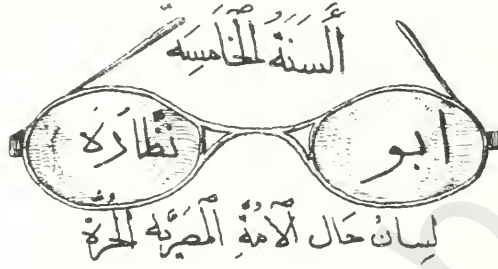 أَلسَنَةُ الخَامِسَه
ابو نَظَّارَة
لِسَانُ حَال اَلأُمَّةِ اَلمِصرِيَّه الحُرَّة